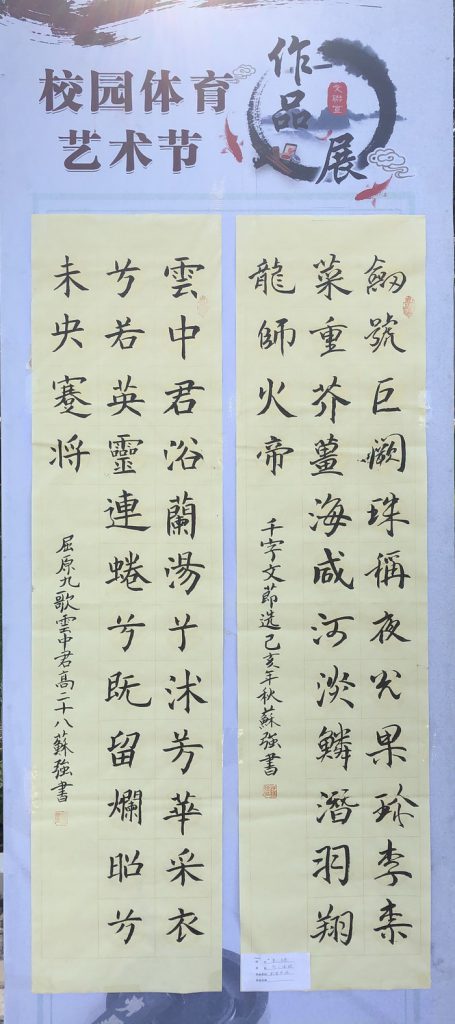 校园体育
艺术节
作品
展
劒號巨闕珠稱夜光果珍李柰
菜重芥薑海咸河淡鱗潛羽翔
龍師火帝
千字文節选己亥年秋蘇強書
雲中君浴蘭湯兮沐芳華采衣
兮若英靈連蜷兮既留爛昭兮
未央蹇将
屈原九歌雲中君高二十八蘇強書